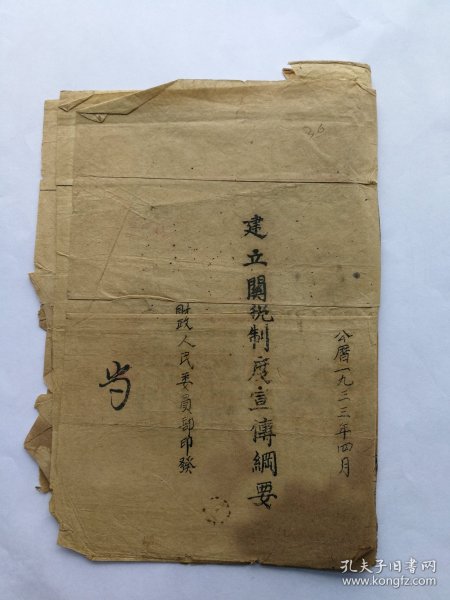 公曆一九三三年四月
建立關稅制度宣傳綱要
財政人民委員部印發
孔夫子旧书网
www.kongfz.com